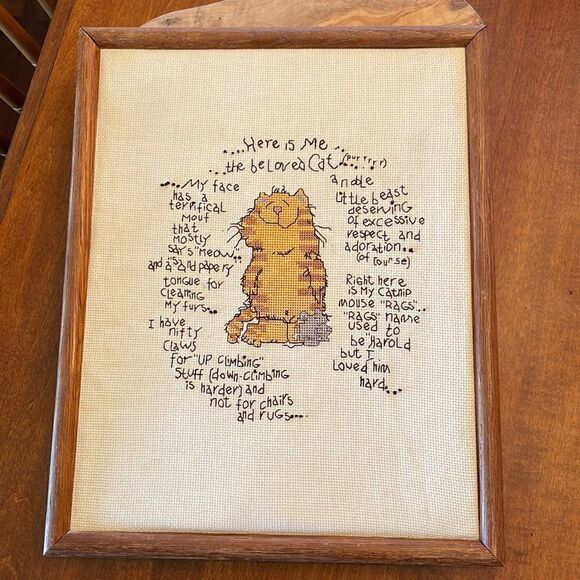 ....Here is Me...
...the beLoved Cat (purrrrr)
....My face
has a
terrifical
mouf
that
mostly
say's "meow"..
and a sand papery
tongue for
cleaning
my furs...
I have
nifty
claws
for "UP climbing"
stuff (down-climbing
is harder) and
not for chairs
and rugs....
a noble
Little beast
deserving
of excessive
respect and
adoration..
(of course)
Right here
is my catnip
mouse "RAGS"..
"RAGS" name
used to
be "Harold"
but I
Loved him
hard...